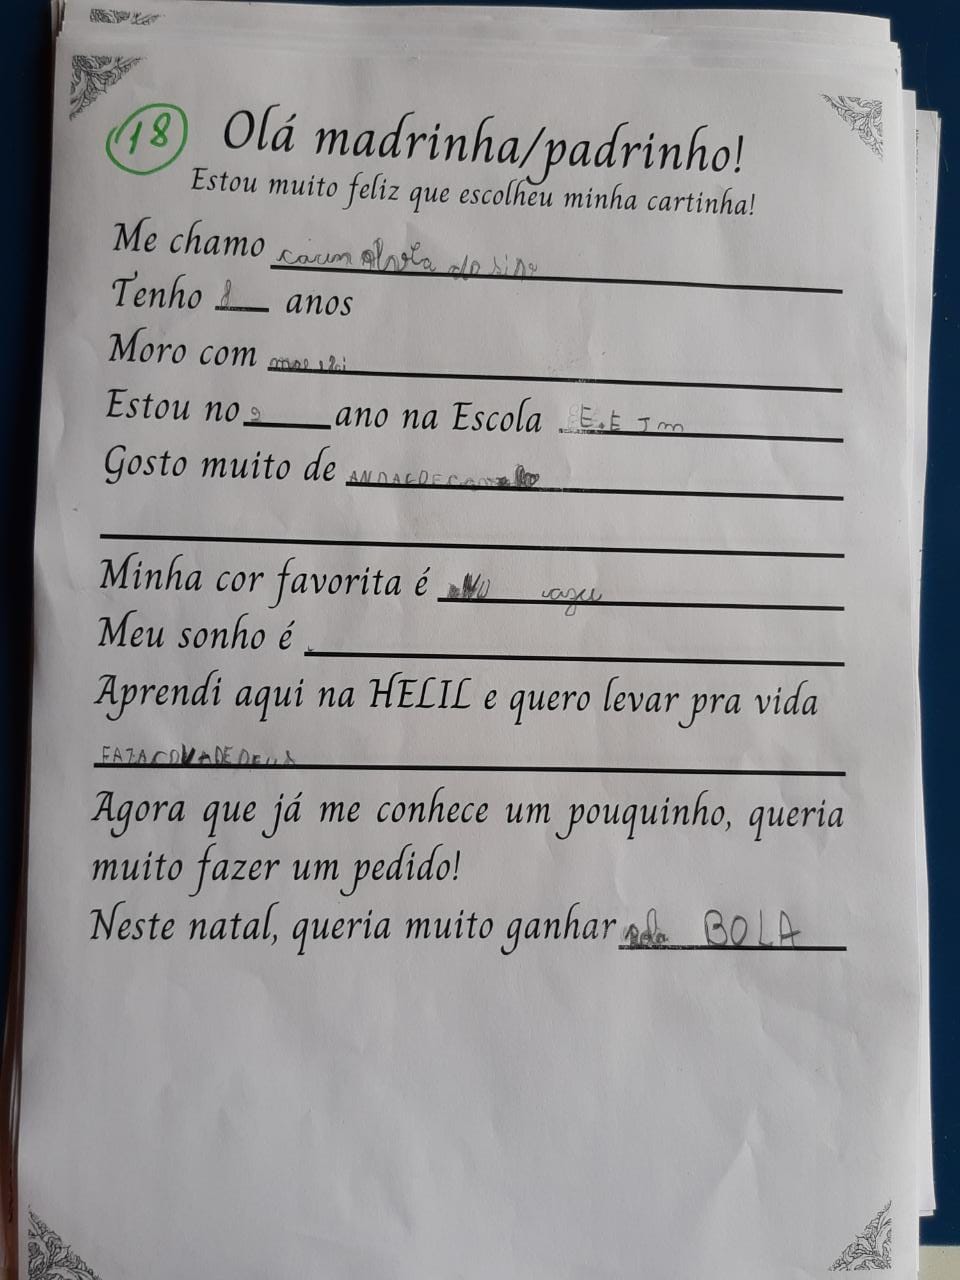 18
Olá madrinha/padrinho!
Estou muito feliz que escolheu minha cartinha!
Me chamo
Tenho 8 anos
Moro com
Estou no ano na Escola E.E J m
Gosto muito de
Minha cor favorita é azu
Meu sonho é
Aprendi aqui na HELIL e quero levar pra vida
Agora que já me conhece um pouquinho, queria
muito fazer um pedido!
Neste natal, queria muito ganhar BOLA